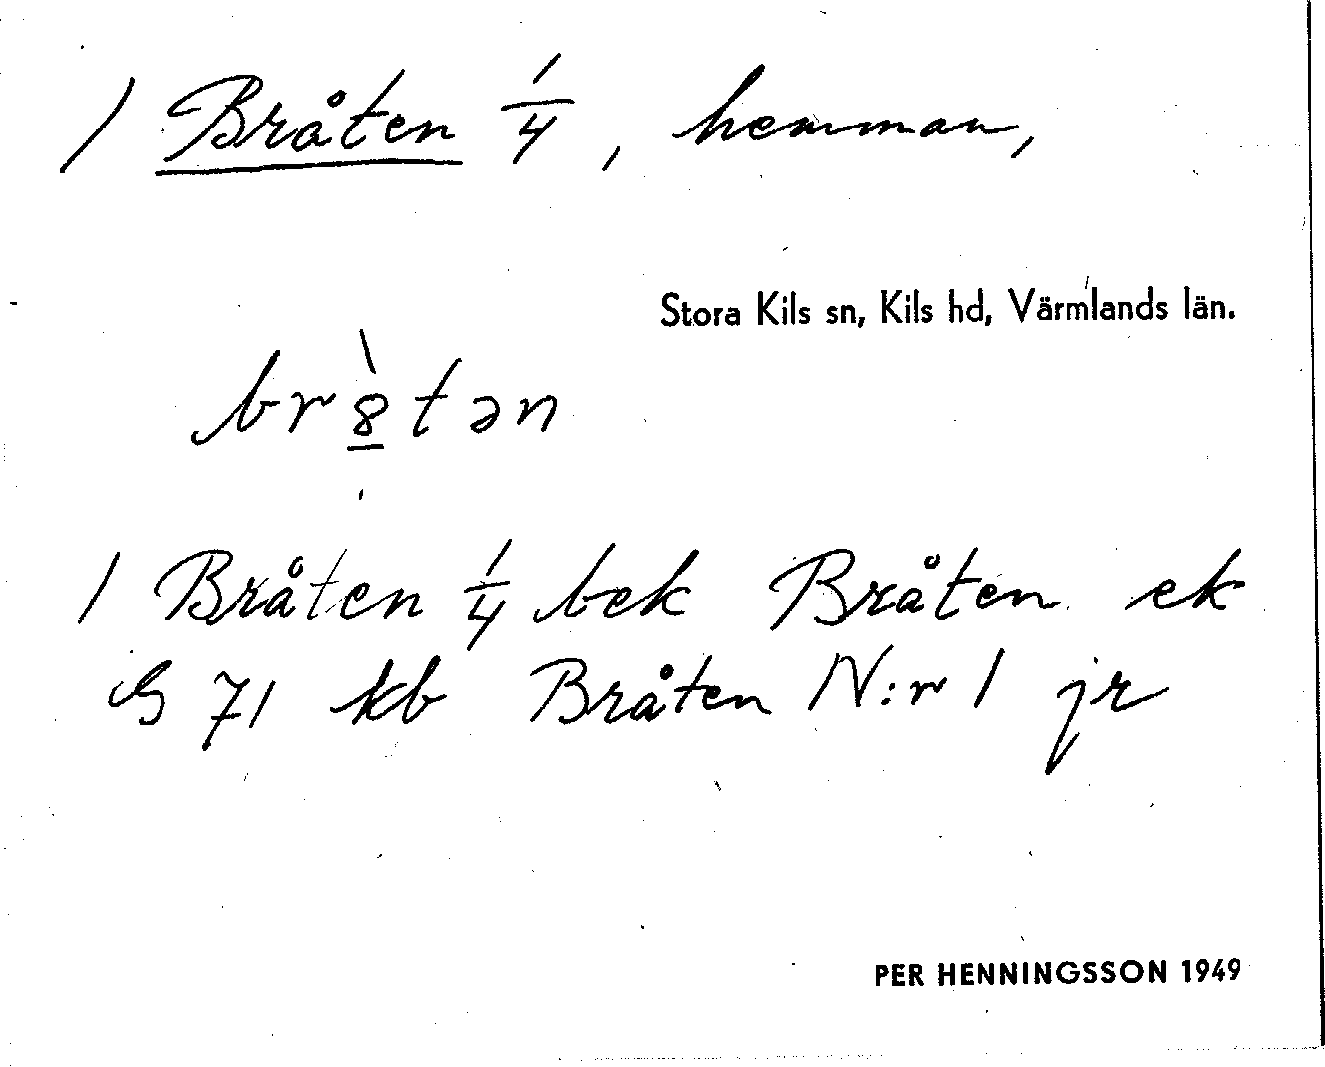 1 Bråten 1/4, hemman,
Stora Kils sn, Kils hd, Värmlands län.
br8̲̀tən
1 Bråten 1/4 bek Bråten ek
G 71 kb Bråten N:r 1 jr
PER HENNINGSSON 1949